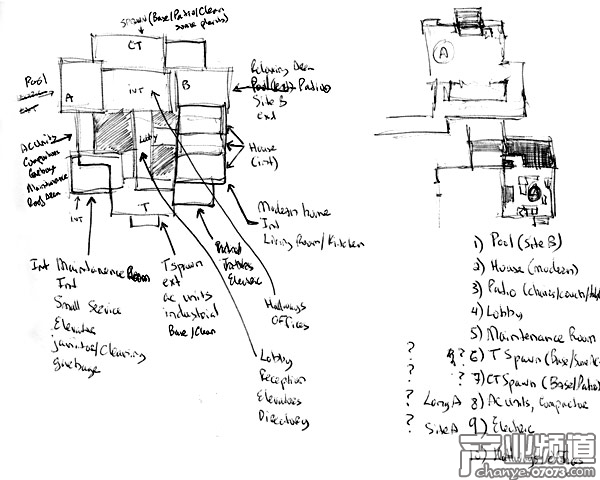 SPAWN (Base/Patio/Clean
some plants)
CT
Pool
A
INT
B
Relaxing Area
Pool (ext) Patio
Site B
Ext
Lobby
House
(int)
AC Units
Compactor
Garbage
Maintenance
INT
T
Modern home
Int
Living Room/Kitchen
Int Maintanance Room
Int
Small Service
Elevator
janitor/Cleaning
garbage
T spawn
ext
ac units
industrial
Base/Clean
Electric
Hallways
OFFices
Lobby
Reception
Elevators
Directory
A
A
1) Pool (Site B)
2) House (modern)
3) Patio (chairs/couch/
4) Lobby
5) Maintenance Room
? ?? 6) T Spawn (Base/
? ? 7) CT Spawn (Base/Patio)
? Long A 8) AC Units, Compactor
? Site A 9) Electric
产业频道
chanye.07073.com